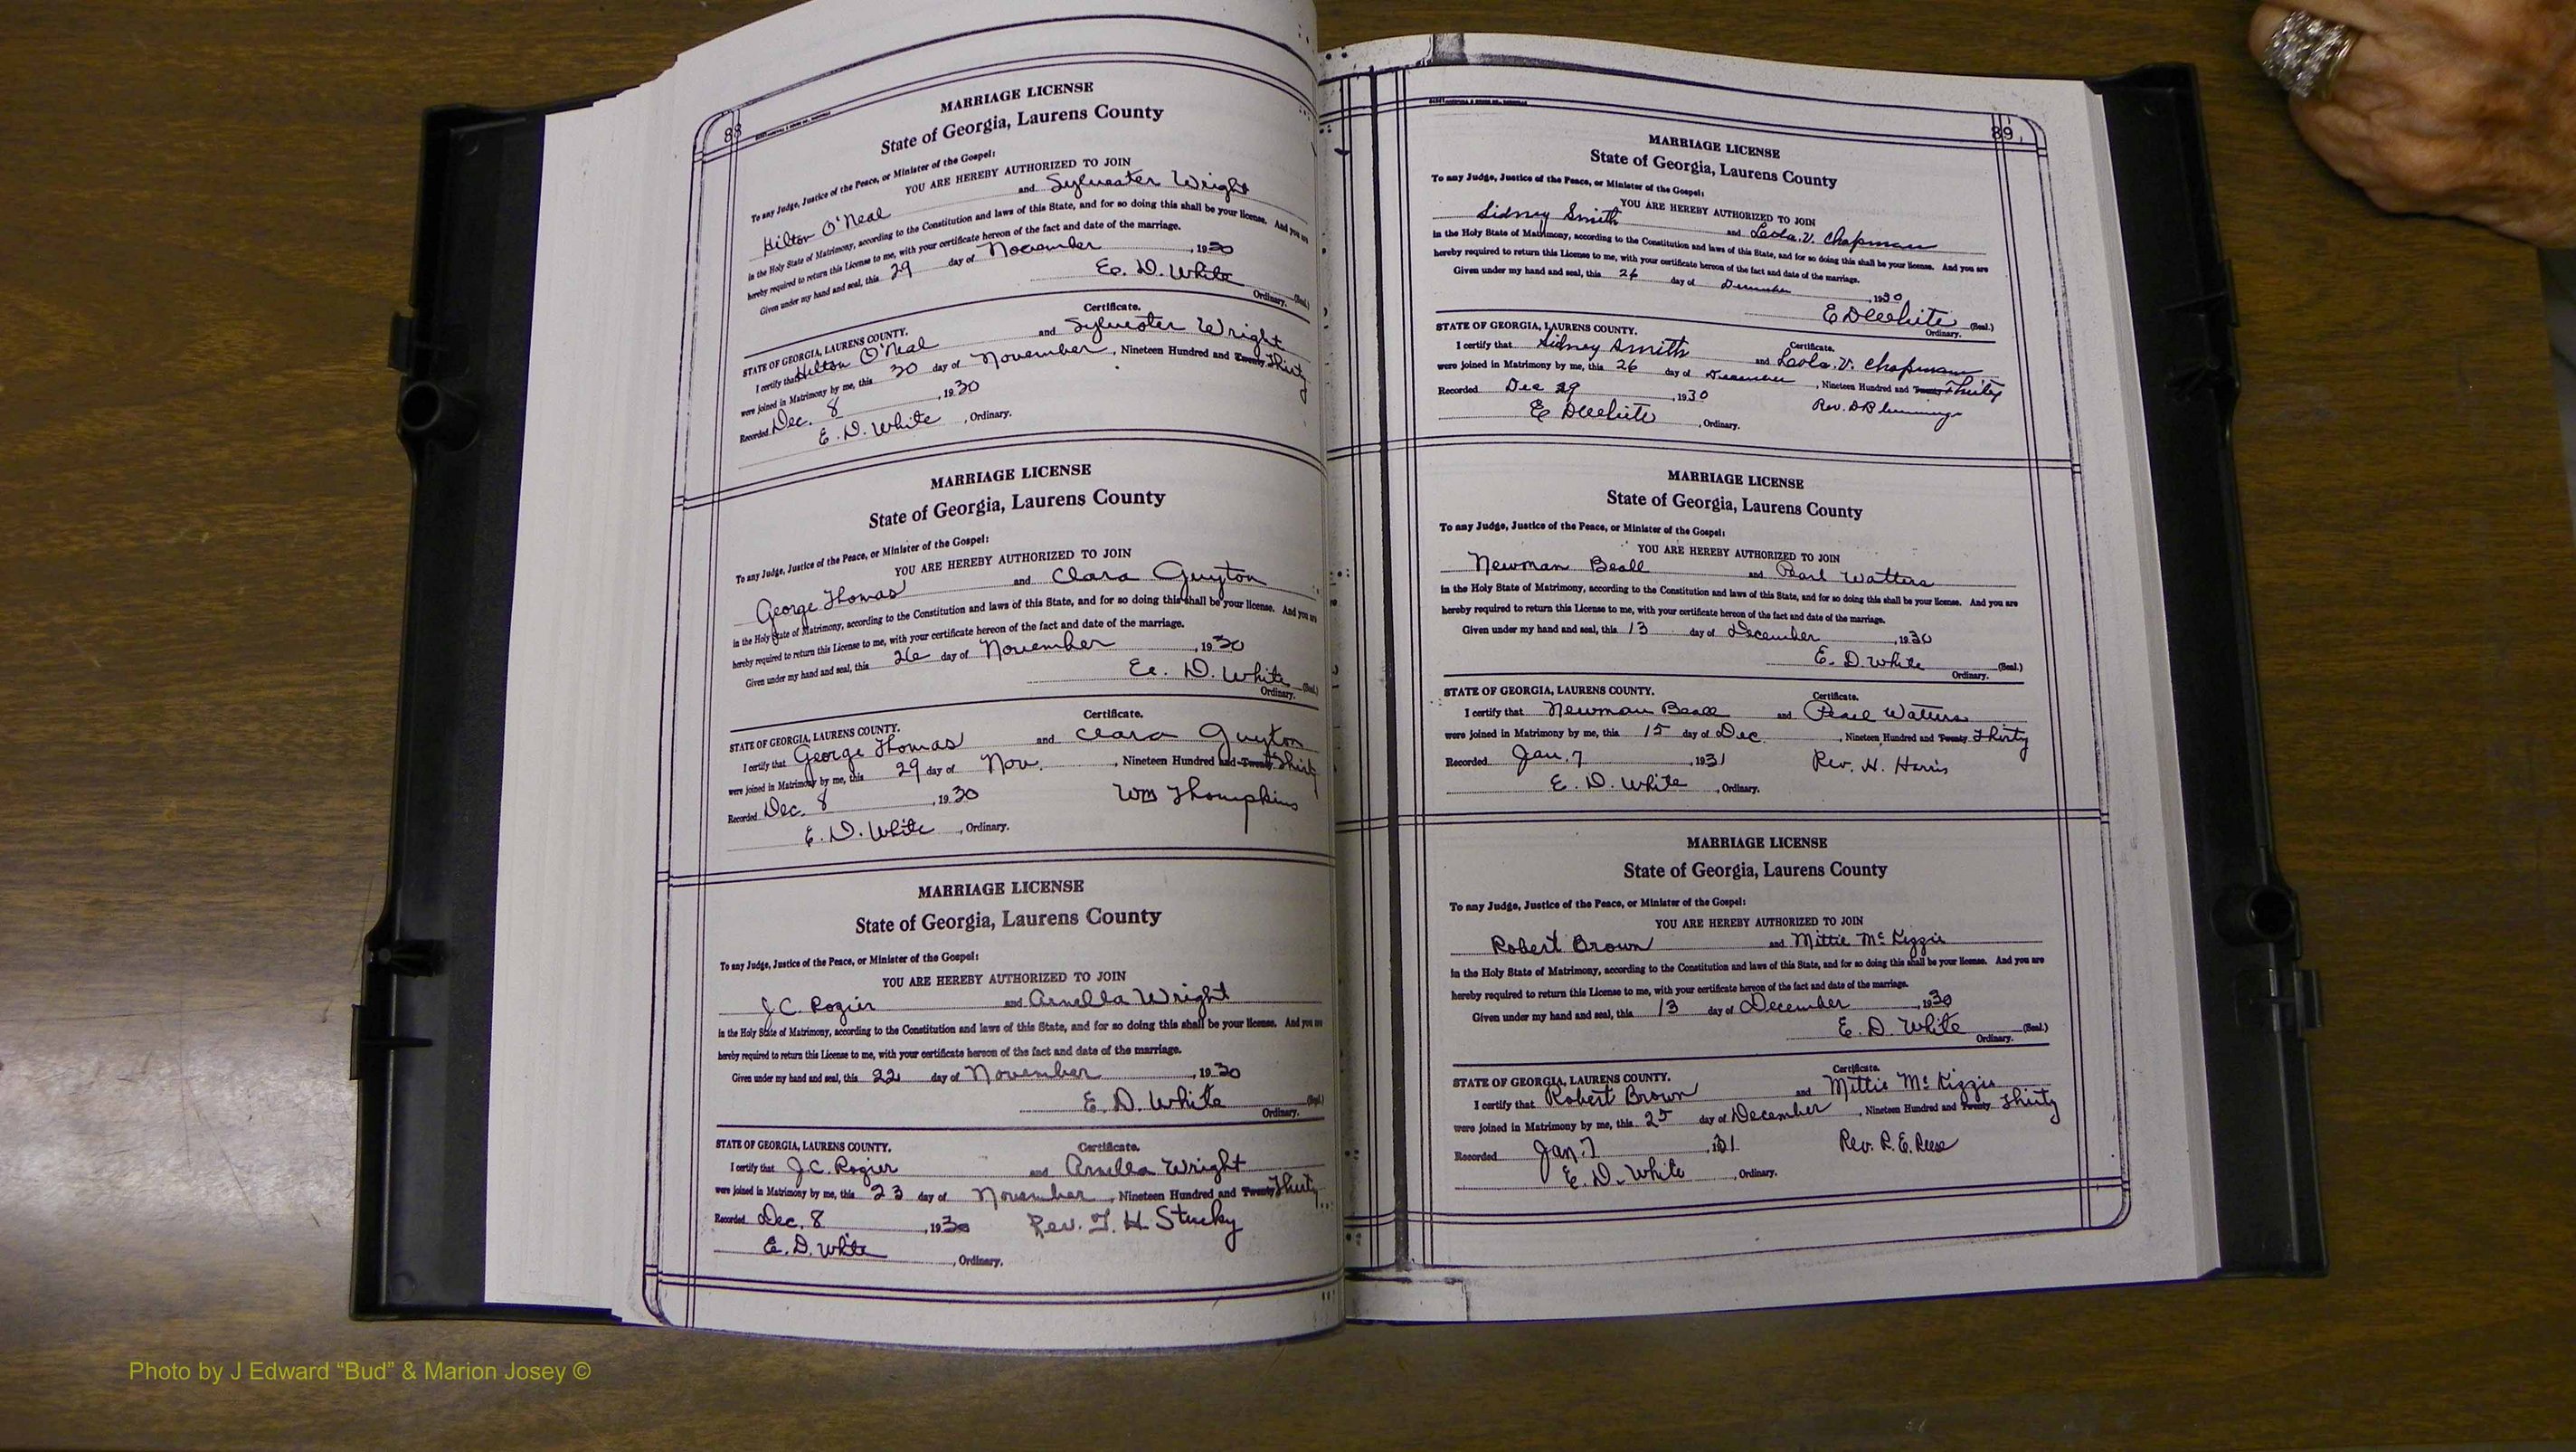 88
MARRIAGE LICENSE
State of Georgia, Laurens County
To any Judge, Justice of the Peace, or Minister of the Gospel:
YOU ARE HEREBY AUTHORIZED TO JOIN
Hilton O'Neal and Sylvester Wright
in the Holy State of Matrimony, according to the Constitution and laws of this State, and for so doing this shall be your license. And you are
hereby required to return this License to me, with your certificate hereon of the fact and date of the marriage.
Given under my hand and seal, this 29 day of November, 1930
E. D. White (Seal.)
Ordinary.
Certificate.
STATE OF GEORGIA, LAURENS COUNTY.
I certify that Hilton O'Neal and Sylvester Wright
were joined in Matrimony by me, this 30 day of November, Nineteen Hundred and Twenty Thirty
Recorded Dec. 8, 1930
E. D. White, Ordinary.
MARRIAGE LICENSE
State of Georgia, Laurens County
To any Judge, Justice of the Peace, or Minister of the Gospel:
YOU ARE HEREBY AUTHORIZED TO JOIN
George Thomas and Clara Guyton
in the Holy State of Matrimony, according to the Constitution and laws of this State, and for so doing this shall be your license. And you are
hereby required to return this License to me, with your certificate hereon of the fact and date of the marriage.
Given under my hand and seal, this 26 day of November, 1930
E. D. White (Seal.)
Ordinary.
Certificate.
STATE OF GEORGIA, LAURENS COUNTY.
I certify that George Thomas and Clara Guyton
were joined in Matrimony by me, this 29 day of Nov., Nineteen Hundred and Twenty Thirty
Recorded Dec. 8, 1930 Wm Thompkins
E. D. White, Ordinary.
MARRIAGE LICENSE
State of Georgia, Laurens County
To any Judge, Justice of the Peace, or Minister of the Gospel:
YOU ARE HEREBY AUTHORIZED TO JOIN
J.C. Rozier and Arnella Wright
in the Holy State of Matrimony, according to the Constitution and laws of this State, and for so doing this shall be your license. And you are
hereby required to return this License to me, with your certificate hereon of the fact and date of the marriage.
Given under my hand and seal, this 22 day of November, 1930
E. D. White (Seal.)
Ordinary.
STATE OF GEORGIA, LAURENS COUNTY. Certificate.
I certify that J.C. Rozier and Arnella Wright
were joined in Matrimony by me, this 23 day of November, Nineteen Hundred and Twenty Thirty
Recorded Dec. 8, 1930 Rev. T. H. Stucky
E. D. White, Ordinary.
89
MARRIAGE LICENSE
State of Georgia, Laurens County
To any Judge, Justice of the Peace, or Minister of the Gospel:
YOU ARE HEREBY AUTHORIZED TO JOIN
Sidney Smith and Leola. V. Chapman
in the Holy State of Matrimony, according to the Constitution and laws of this State, and for so doing this shall be your license. And you are
hereby required to return this License to me, with your certificate hereon of the fact and date of the marriage.
Given under my hand and seal, this 26 day of December, 1930
E D White (Seal.)
Ordinary.
STATE OF GEORGIA, LAURENS COUNTY. Certificate.
I certify that Sidney Smith and Leola. V. Chapman
were joined in Matrimony by me, this 26 day of December, Nineteen Hundred and Twenty Thirty
Recorded Dec 29, 1930 Rev. D.B.
E D White, Ordinary.
MARRIAGE LICENSE
State of Georgia, Laurens County
To any Judge, Justice of the Peace, or Minister of the Gospel:
YOU ARE HEREBY AUTHORIZED TO JOIN
Newman Beall and Pearl Watters
in the Holy State of Matrimony, according to the Constitution and laws of this State, and for so doing this shall be your license. And you are
hereby required to return this License to me, with your certificate hereon of the fact and date of the marriage.
Given under my hand and seal, this 13 day of December, 1930
E. D. White (Seal.)
Ordinary.
STATE OF GEORGIA, LAURENS COUNTY. Certificate.
I certify that Newman Beall and Pearl Watters
were joined in Matrimony by me, this 15 day of Dec., Nineteen Hundred and Twenty Thirty
Recorded Jan. 7, 1931 Rev. H. Harris
E. D. White, Ordinary.
MARRIAGE LICENSE
State of Georgia, Laurens County
To any Judge, Justice of the Peace, or Minister of the Gospel:
YOU ARE HEREBY AUTHORIZED TO JOIN
Robert Brown and Mittie McKizzie
in the Holy State of Matrimony, according to the Constitution and laws of this State, and for so doing this shall be your license. And you are
hereby required to return this License to me, with your certificate hereon of the fact and date of the marriage.
Given under my hand and seal, this 13 day of December, 1930
E. D. White (Seal.)
Ordinary.
STATE OF GEORGIA, LAURENS COUNTY. Certificate.
I certify that Robert Brown and Mittie McKizzie
were joined in Matrimony by me, this 25 day of December, Nineteen Hundred and Twenty Thirty
Recorded Jan. 7, 1931 Rev. R. E. Reese
E. D. White, Ordinary.
Photo by J Edward “Bud” & Marion Josey ©